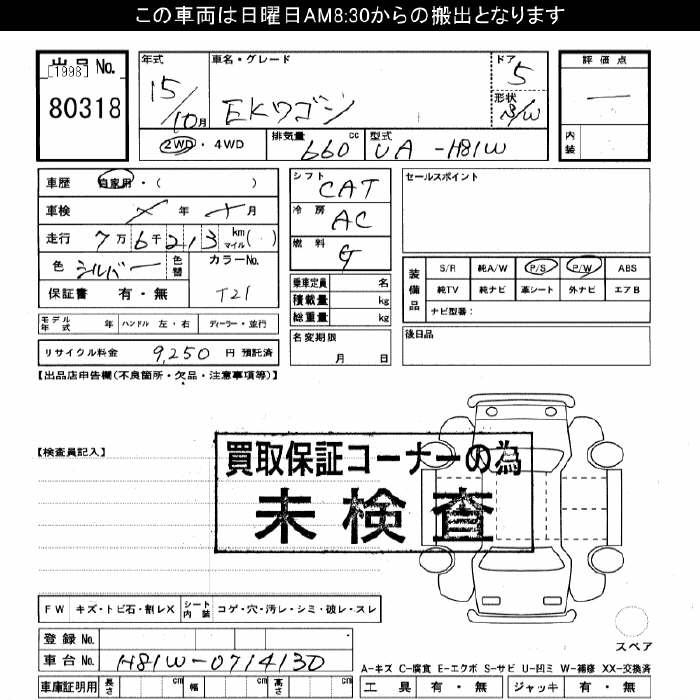 この車両は日曜日AM8:30からの搬出となります
出品No.
[1998]
80318
年式 15/10月
車名・グレード
EKワゴン
ドア 5
形状 B/W
評価点
—
内装
2WD・4WD
排気量 660 cc
型式 UA-H81W
車歴 自家用・( )
車検 年 月
走行 7万6千213 km マイル( )
色 シルバー 色替
カラーNo. T21
保証書 有・無
シフト CAT
冷房 AC
燃料 G
乗車定員 名
積載量 kg
総重量 kg
セールスポイント
装備品
S/R 純A/W P/S P/W ABS
純TV 純ナビ 革シート 外ナビ エアB
ナビ型番:
モデル年式 年 ハンドル 左・右 ディーラー・並行
名変期限
月 日
後日品
リサイクル料金 9,250 円 預託済
【出品店申告欄(不良箇所・欠品・注意事項等)】
【検査員記入】
買取保証コーナーの為
未検査
FW キズ・トビ石・割レX シート内装 コゲ・穴・汚レ・シミ・破レ・スレ
スペア
登録No.
車台No. H81W-0714130
A-キズ C-腐食 E-エクボ S-サビ U-凹ミ W-補修 XX-交換済
車庫証明用 長さ cm 幅 cm 高さ cm
工具 有・無 ジャッキ 有・無